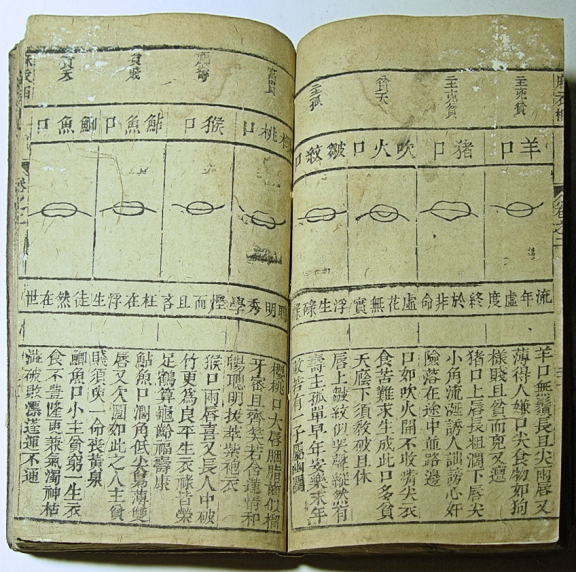 主兇貧
主剋貧
貧夭
主孤
羊口
猪口
吹火口
皺紋口
流年虛度
終於非命
虛花無實
浮生碌
羊口無鬚長且尖兩唇又
薄得人嫌口尖食物如狗
樣賤且貧而兇又邅
猪口上唇長粗濶下唇尖
小角流涎誘人訕謗心奸
險落在途中並路邊
口如吹火開不收觜尖衣
食苦難求生成此口多貧
夭廕下須教破且休
唇上皺紋似哭顏縱然有
壽主孤單早年安樂末年
敗若有一子屬幽關
富貴
貴賤
貧夭
櫻桃口
猴口
鮎魚口
鯽魚口
聰明秀學
慳而且吝
枉在浮生
徒然在世
櫻桃口大唇胭脂齒似榴
牙密且齊笑若含蓮情和
暢聰明拔萃紫袍衣
猴口兩唇喜又長人中破
竹更為良平生衣祿皆榮
足鶴算龜齡福壽康
鮎魚口濶角低尖梟薄雙
唇又欠圓如此之人主貧
賤須臾一命喪黃泉
鯽魚口小主貧窮一生衣
食不豐隆更兼氣濁神枯
澁破敗漂蓬運不通